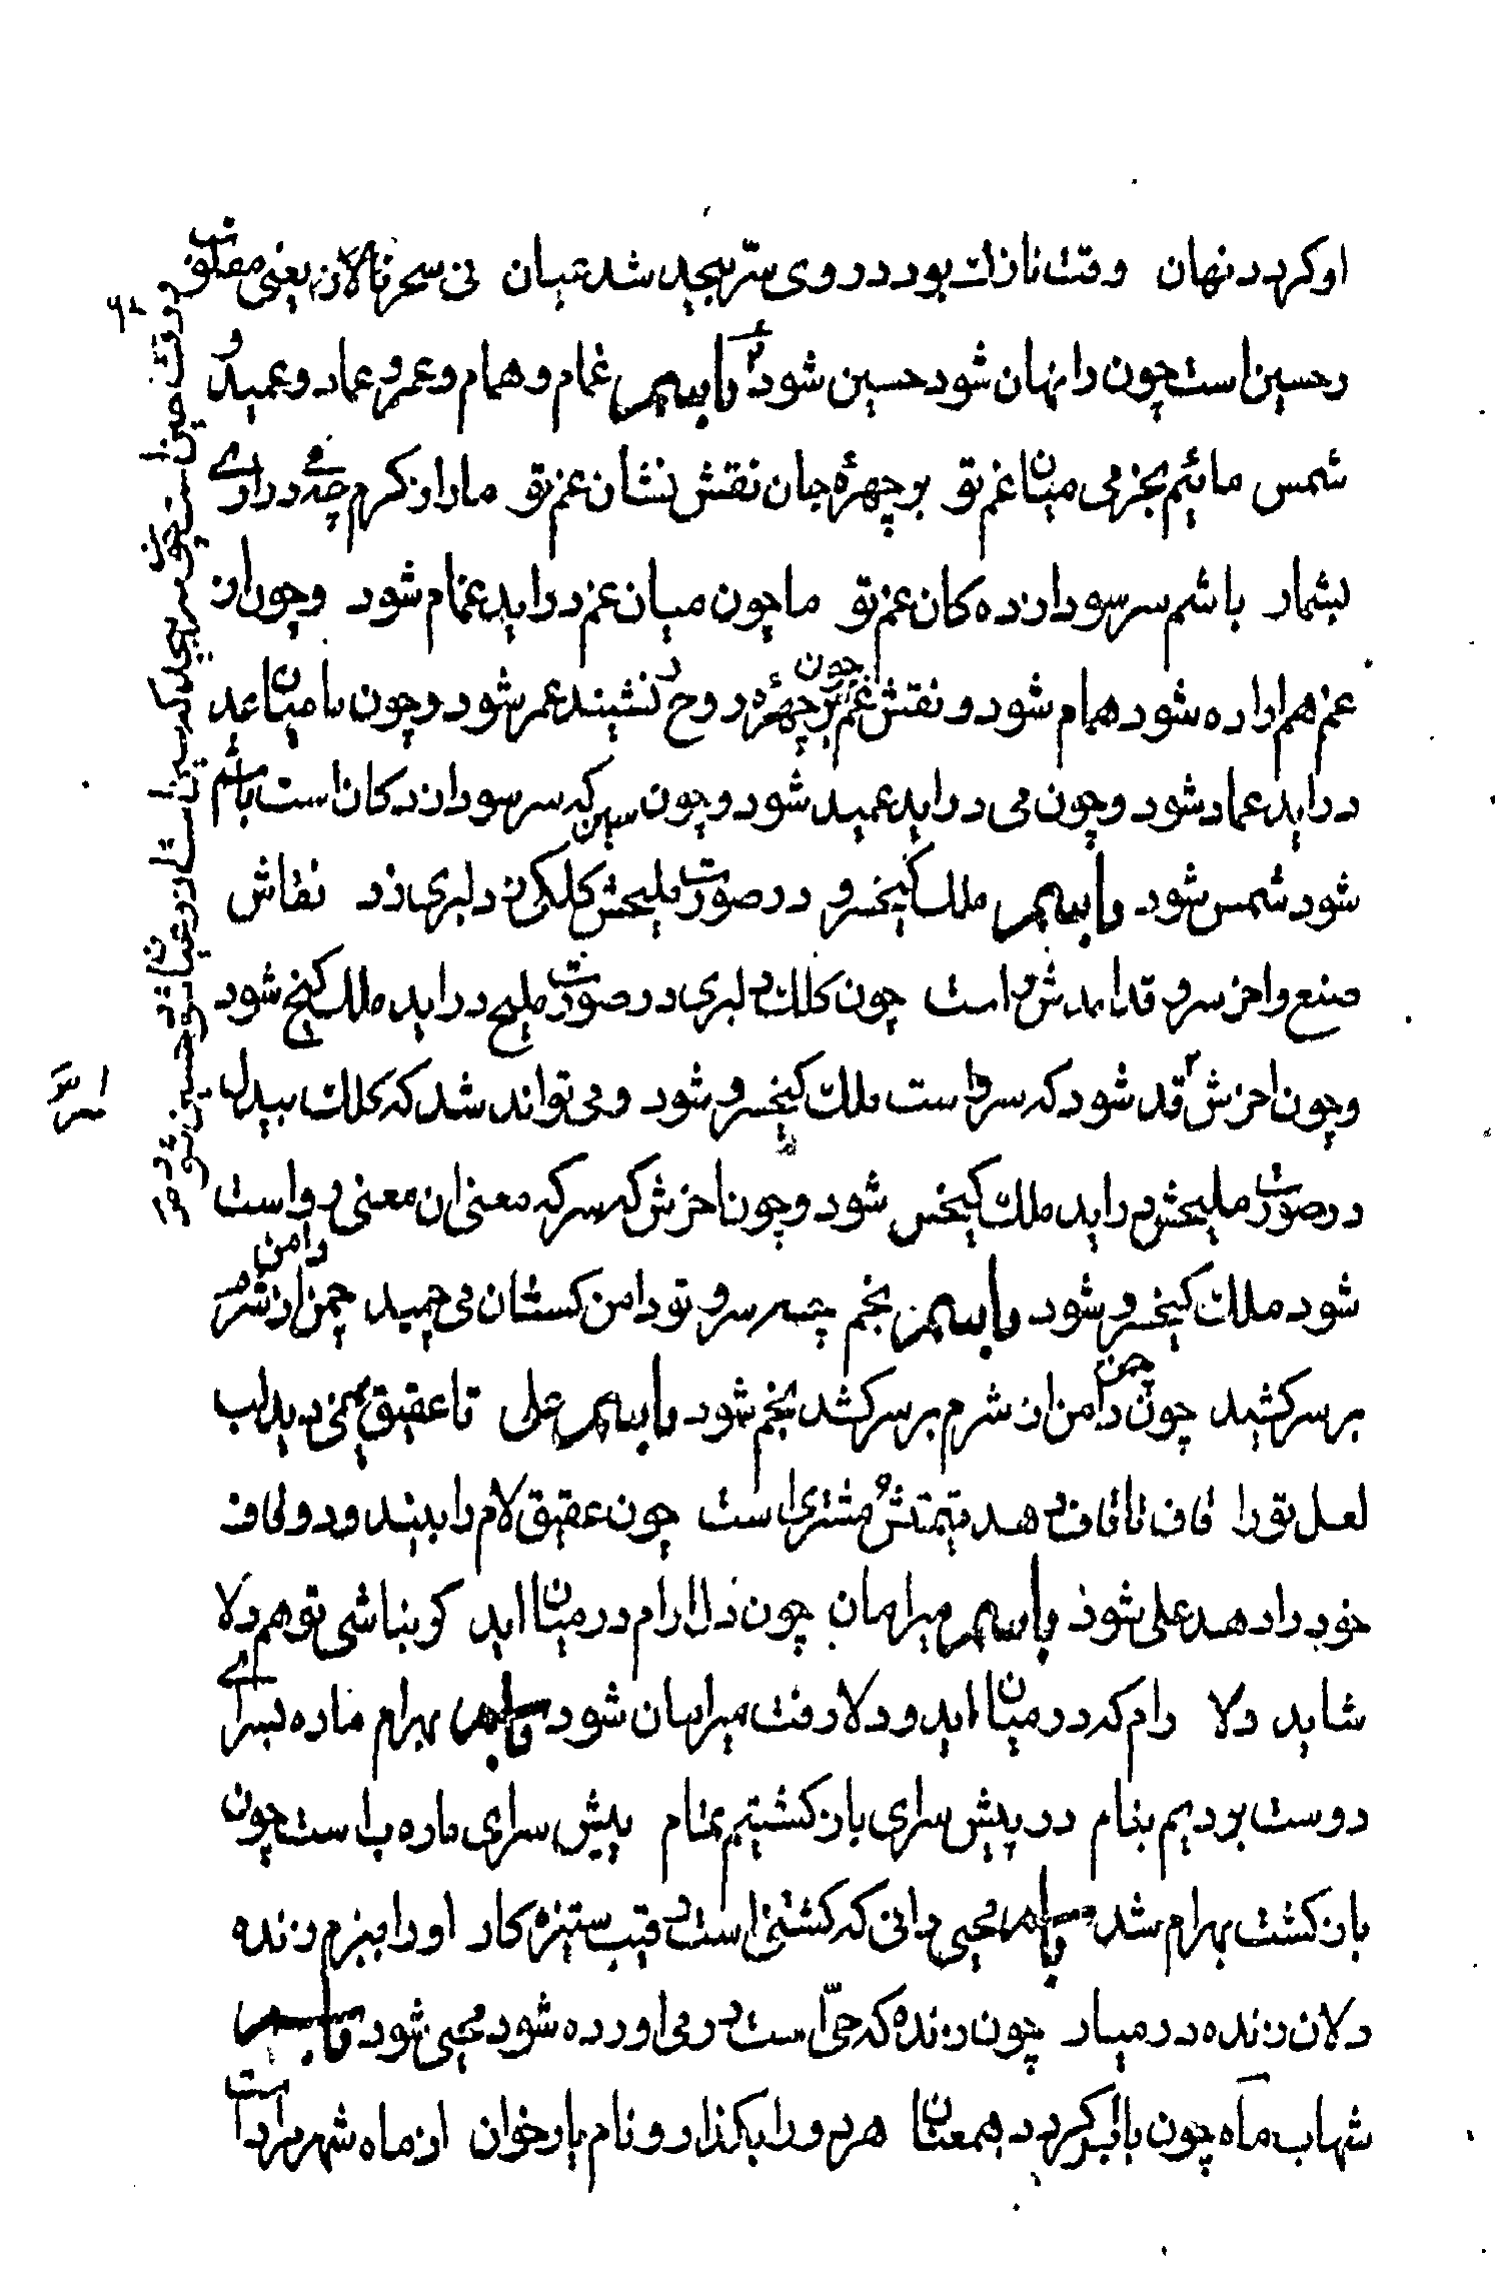 او کردد نهان وقت نازات بود در وی ستر بیجد شد عیان نی سحر نالان یعنی مقلوب
رحسین است چون را نهان شود حسین شود باسم غمام و همام و عمر و عماد و عمید و
شمس مائیم بجز می میان غم تو بر چهرهٔ جان نقش نشان غم تو ما را ز کرم چه در اری
بشمار باشم سر سودا زده کان غم تو ما چون میان غم دراید غمام شود و چون از
غم هم اراده شود همام شود و نقش غم چون بر چهره روح نشیند عمر شود و چون ما میان عد
دراید عماد شود و چون می دراید عمید شود و چون سین که سر سودا زدکان است باشم
شود شمس شود باسم ملک کیخسرو در صورت ملیحش کلک کز دلبری زد نقاش
صنع و اخر سرو قد امدش راست چون کلک دلبری در صورت ملیح دراید ملک کیخ شود
و چون اخرش قد شود که سرو است ملک کیخسرو شود و می تواند شد که کلک بیدل
در صورت ملیحش دراید ملک کیخس شود و چون اخرش که سر که معنی ان معنی رو است
شود ملک کیخسرو شود باسم نجم چشم سرو تو دامن کستان می چمید چمن از شرم دامن
بر سر کشید چون چمن دامن از شرم بر سر کشد نجم شود باسم علی تا عقیق یمنی دید لب
لعل تو را قاف تا قاف دهد قیمتش و مشتری است چون عقیق لام را بیند و دو قاف
خود را دهد علی شود باسم میرامان چون دل ارام در میان اید کو بناشی تو هم دلا
شاید دلا رام که در میان اید و دلا رفت میرامان شود باسم بهرام ما ره بسرای
دوست بردیم بنام در پیش سرای باز کشتیم تمام پیش سرای ماره ب است چون
باز کشت بهرام شد باسم محیی دانی که کشتنی است رقیب ستیزه کار او را ببزم زنده
دلان زنده در میار چون زنده که حیّ است در می اورده شود محیی شود باسم
شهاب ماه چون با ابر کردد همعنان هر دو را بکذار و نام یار خوان از ماه شهر مراد است